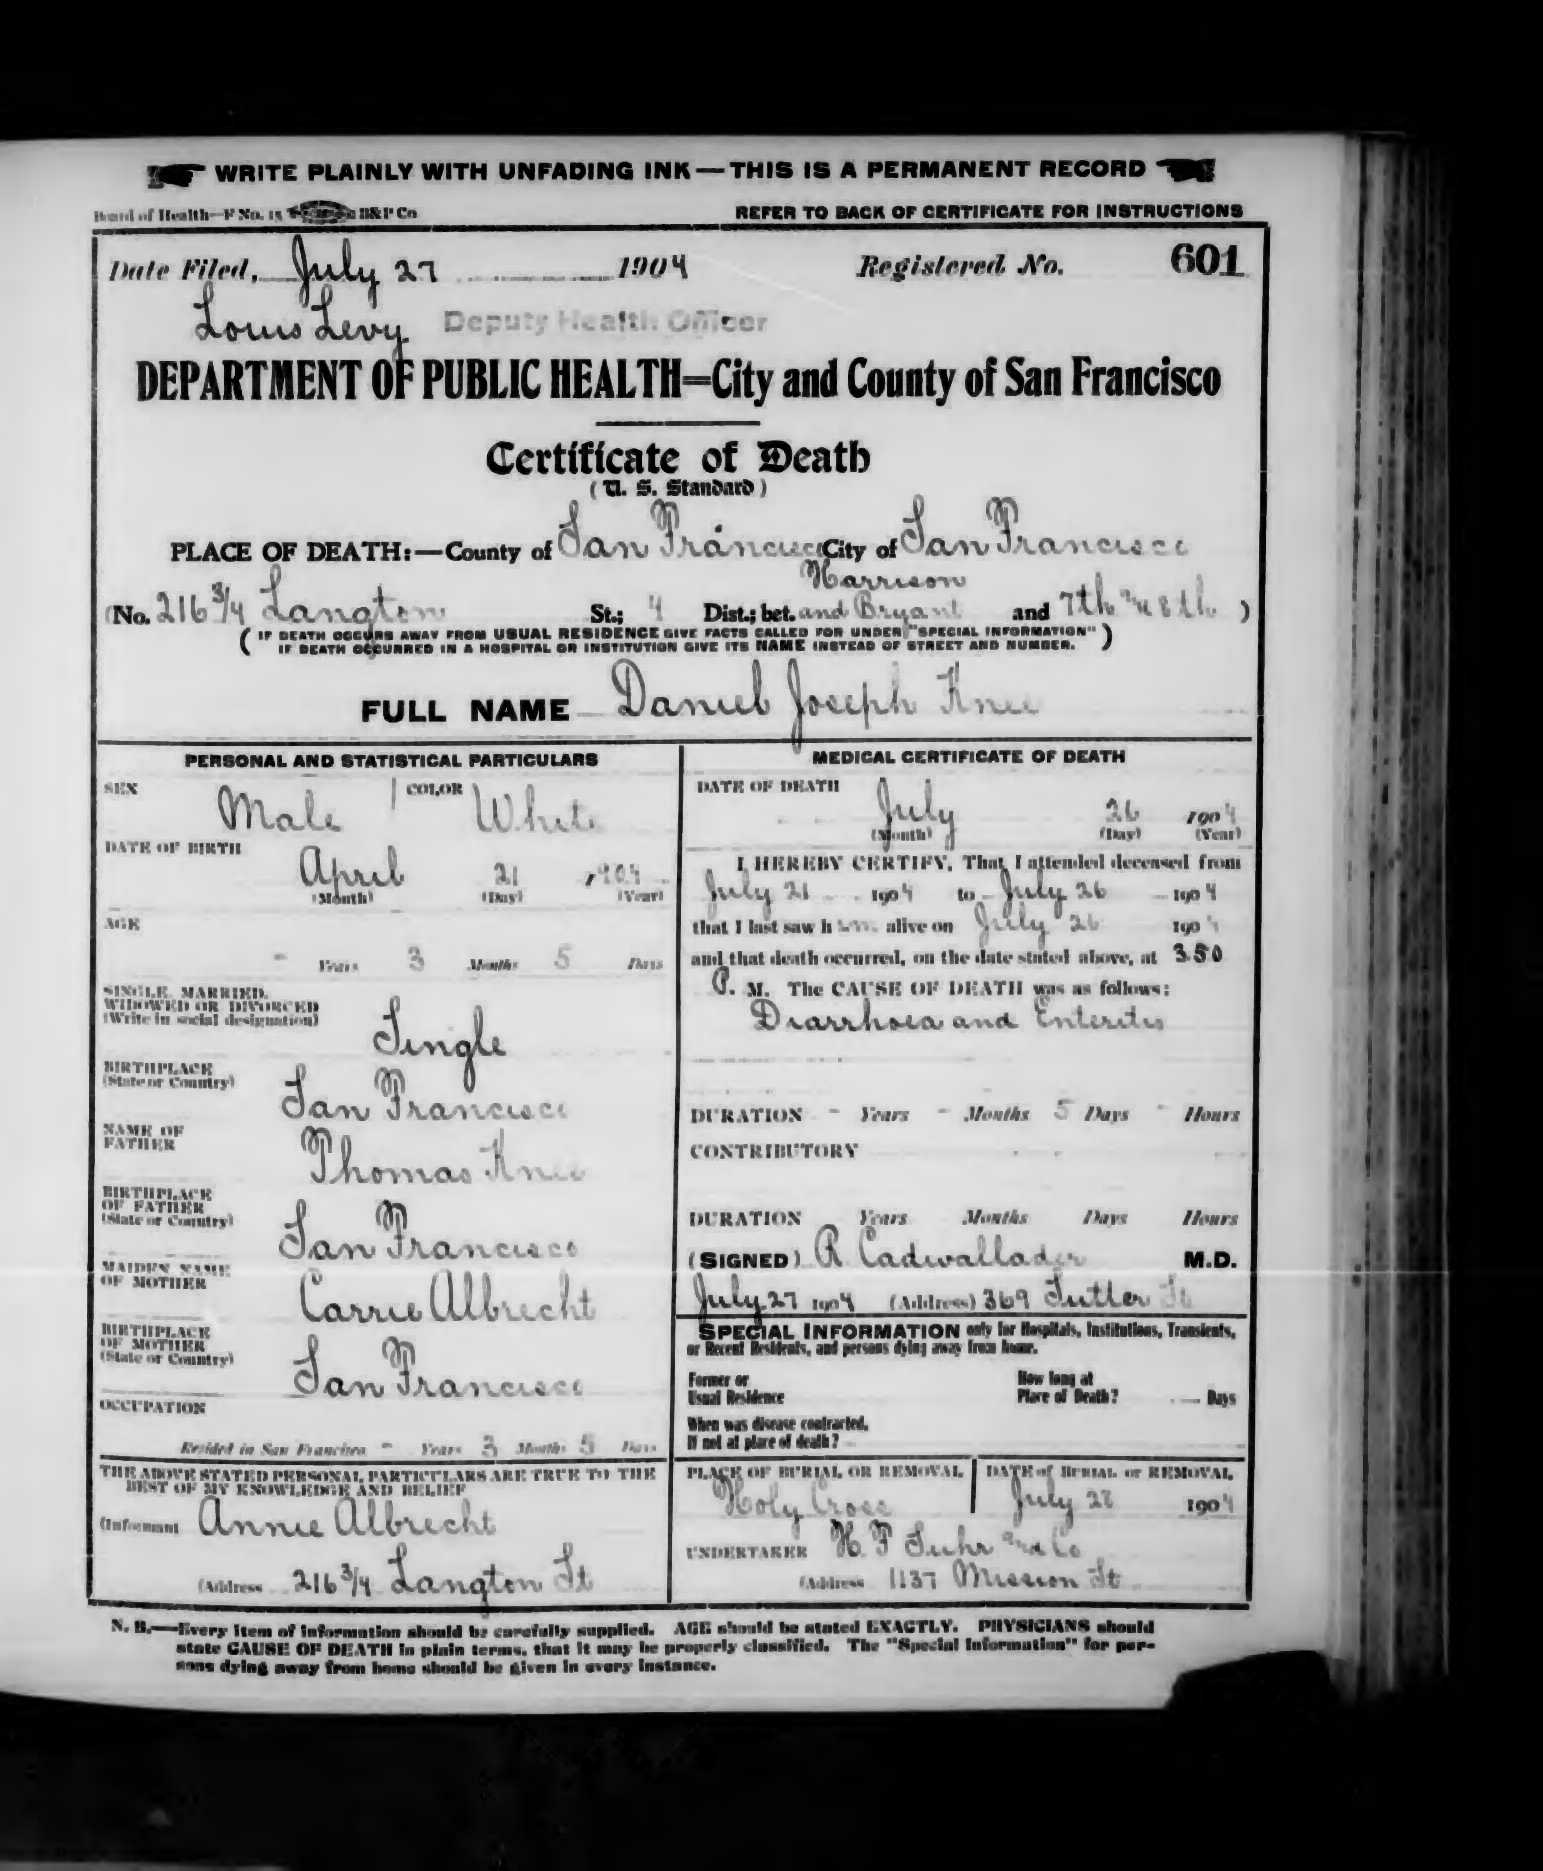 WRITE PLAINLY WITH UNFADING INK — THIS IS A PERMANENT RECORD
Board of Health—F No. 15 B&P Co
REFER TO BACK OF CERTIFICATE FOR INSTRUCTIONS
Date Filed, July 27 1904 Registered No. 601
Louis Levy Deputy Health Officer
DEPARTMENT OF PUBLIC HEALTH=City and County of San Francisco
Certificate of Death
(U. S. Standard)
PLACE OF DEATH:—County of San Francisco City of San Francisco
Harrison
(No. 216 3/4 Langton St.; 4 Dist.; bet. and Bryant and 7th and 8th )
( IF DEATH OCCURS AWAY FROM USUAL RESIDENCE GIVE FACTS CALLED FOR UNDER "SPECIAL INFORMATION"
IF DEATH OCCURRED IN A HOSPITAL OR INSTITUTION GIVE ITS NAME INSTEAD OF STREET AND NUMBER. )
FULL NAME Daniel Joseph Knee
PERSONAL AND STATISTICAL PARTICULARS
SEX Male COLOR White
DATE OF BIRTH
April 21 1904
(Month) (Day) (Year)
AGE
- Years 3 Months 5 Days
SINGLE, MARRIED,
WIDOWED OR DIVORCED
(Write in social designation)
Single
BIRTHPLACE
(State or Country)
San Francisco
NAME OF
FATHER
Thomas Knee
BIRTHPLACE
OF FATHER
(State or Country)
San Francisco
MAIDEN NAME
OF MOTHER
Carrie Albrecht
BIRTHPLACE
OF MOTHER
(State or Country)
San Francisco
OCCUPATION
Resided in San Francisco - Years 3 Months 5 Days
THE ABOVE STATED PERSONAL PARTICULARS ARE TRUE TO THE
BEST OF MY KNOWLEDGE AND BELIEF
(Informant Annie Albrecht
(Address 216 3/4 Langton St
MEDICAL CERTIFICATE OF DEATH
DATE OF DEATH
July 26 1904
(Month) (Day) (Year)
I HEREBY CERTIFY, That I attended deceased from
July 21 1904 to July 26 1904
that I last saw h im alive on July 26 1904
and that death occurred, on the date stated above, at 3.50
P. M. The CAUSE OF DEATH was as follows:
Diarrhoea and Enteritis
DURATION - Years - Months 5 Days - Hours
CONTRIBUTORY
DURATION Years Months Days Hours
(SIGNED) R Cadwallader M.D.
July 27 1904 (Address) 369 Sutter St
SPECIAL INFORMATION only for Hospitals, Institutions, Transients,
or Recent Residents, and persons dying away from home.
Former or
Usual Residence
How long at
Place of Death? Days
When was disease contracted,
If not at place of death?
PLACE OF BURIAL OR REMOVAL
Holy Cross
DATE of BURIAL or REMOVAL
July 28 1904
UNDERTAKER H. F Suhr and Co
(Address 1137 Mission St
N. B.—Every item of information should be carefully supplied. AGE should be stated EXACTLY. PHYSICIANS should
state CAUSE OF DEATH in plain terms, that it may be properly classified. The "Special Information" for per-
sons dying away from home should be given in every instance.